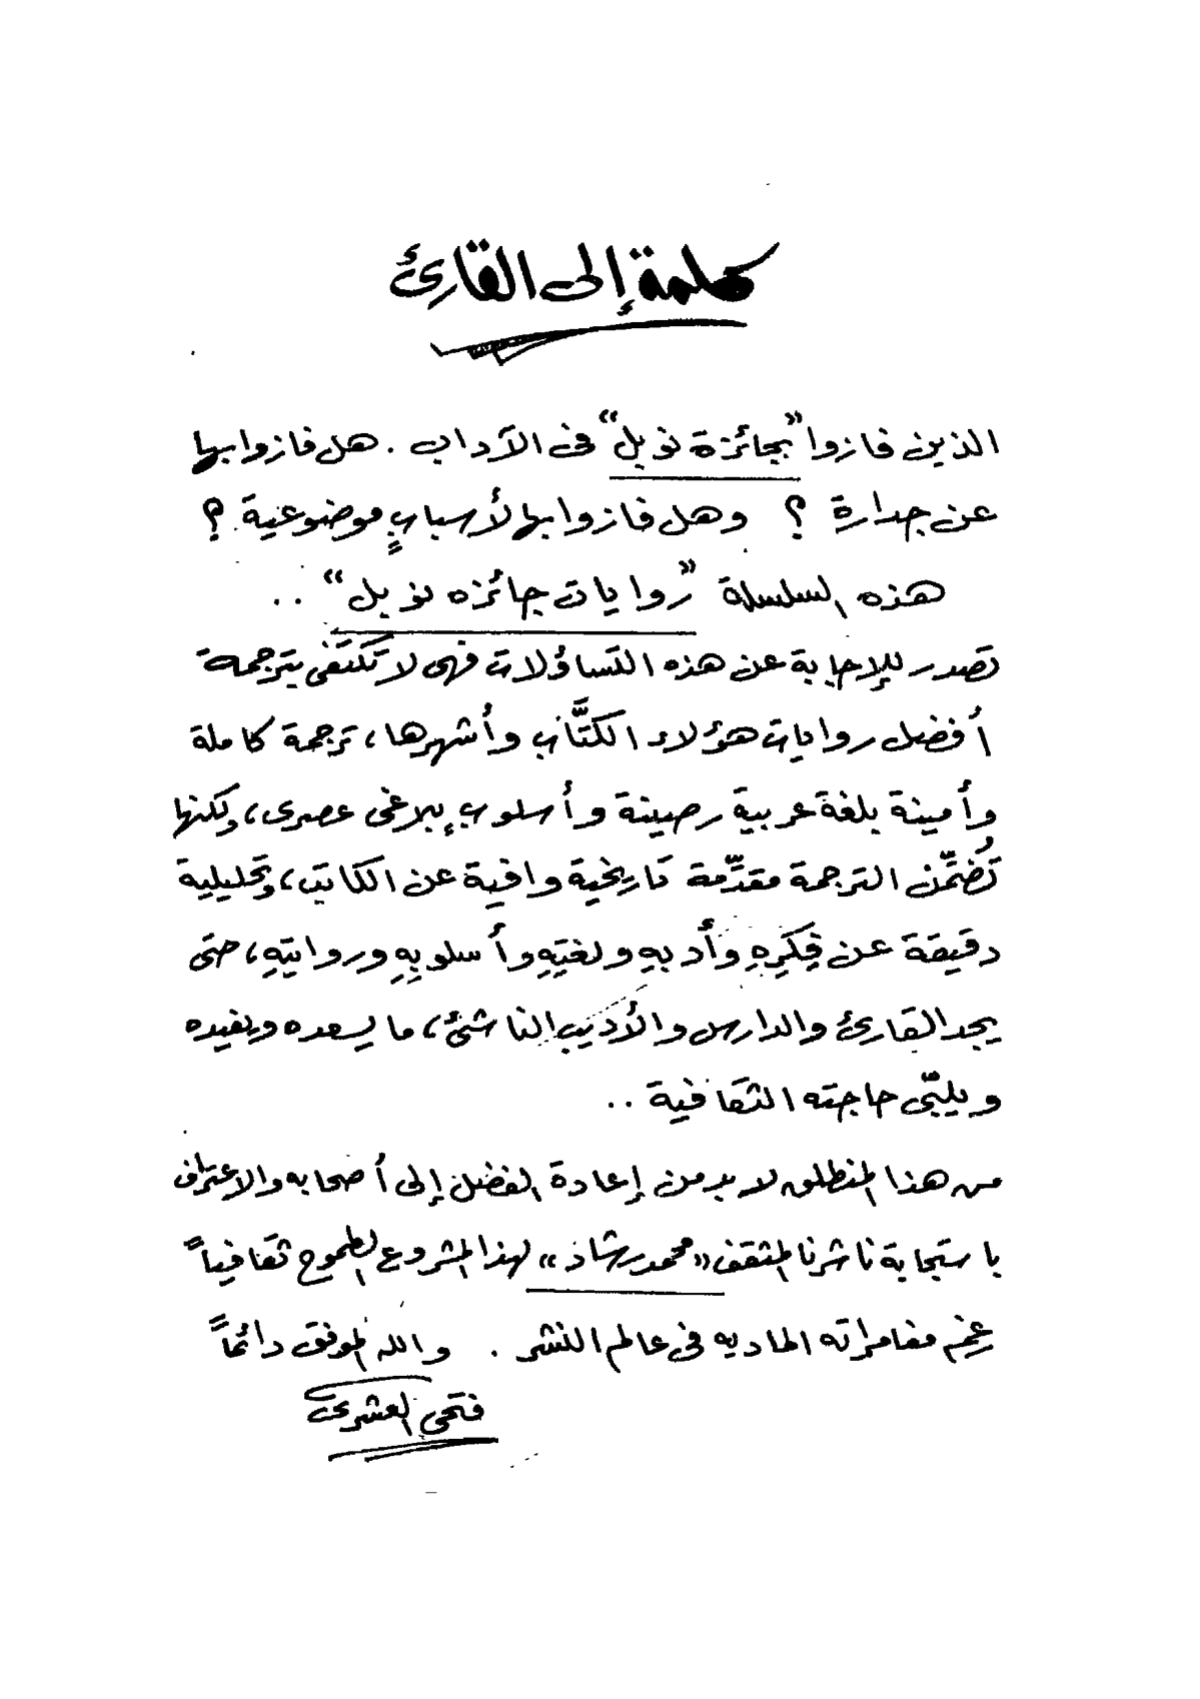 كلمة إلى القارئ
الذين فازوا "بجائزة نوبل" فى الآداب . هل فازوا بها
عن جدارة ؟ وهل فازوا بها لأسبابٍ موضوعية ؟
هذه السلسلة "روايات جائزه نوبل" ..
تصدر للإجابة عن هذه التساؤلات فهى لا تكتفى بترجمة
أفضل روايات هؤلاء الكتَّاب وأشهرها، ترجمة كاملة
وأمينة بلغة عربية رصينة وأسلوبٍ بلاغى عصرى، ولكنها
تُضمِّن الترجمة مقدِّمة تاريخية وافية عن الكاتب، وتحليلية
دقيقة عن فِكَرِهِ وأدبهِ ولغتِهِ وأسلوبِهِ وروايتِهِ، حتى
يجد القارئ والدارس والأديب الناشئ، ما يسعده ويفيده
ويلبّى حاجته الثقافية ..
من هذا المنطلق لابد من إعادة الفضل إلى أصحابه والاعتراف
باستجابة ناشرنا المثقف «محمد رشاد» لهذا المشروع الطموح ثقافياً
رغم مغامراته الماديه فى عالم النشر . والله الموفق دائماً
فتحى العشرى